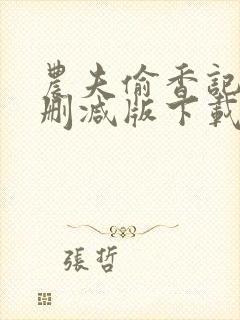 農夫偷香記
刪減版下載
張哲